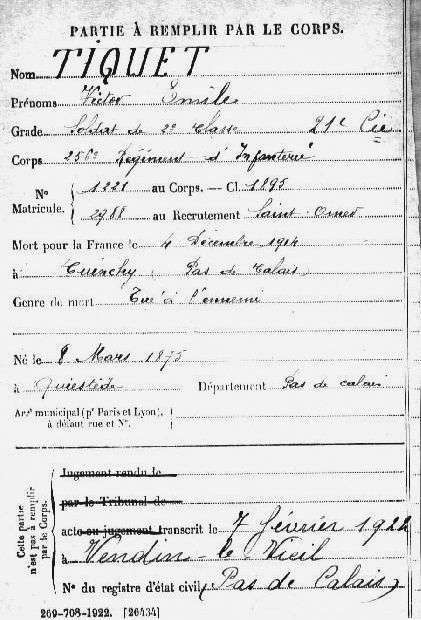 PARTIE À REMPLIR PAR LE CORPS.
Nom TIQUET
Prénoms Victor Emile
Grade Soldat de 2e Classe 21e Cie
Corps 256e Régiment d'Infanterie
N° Matricule. 1221 au Corps. — Cl. 1895
2988 au Recrutement Saint-Omer
Mort pour la France le 4 Décembre 1914
à Cuinchy Pas de Calais
Genre de mort Tué à l'ennemi
Né le 8 Mars 1875
à Quiestède Département Pas de calais
Arr¹ municipal (p' Paris et Lyon),
à défaut rue et N°.
Cette partie n'est pas à remplir par le Corps.
Jugement rendu le
par le Tribunal de
acte ou jugement transcrit le 7 février 1922
à Vendin-le Vieil
N° du registre d'état civil (Pas de Calais)
269-708-1922. [26434]